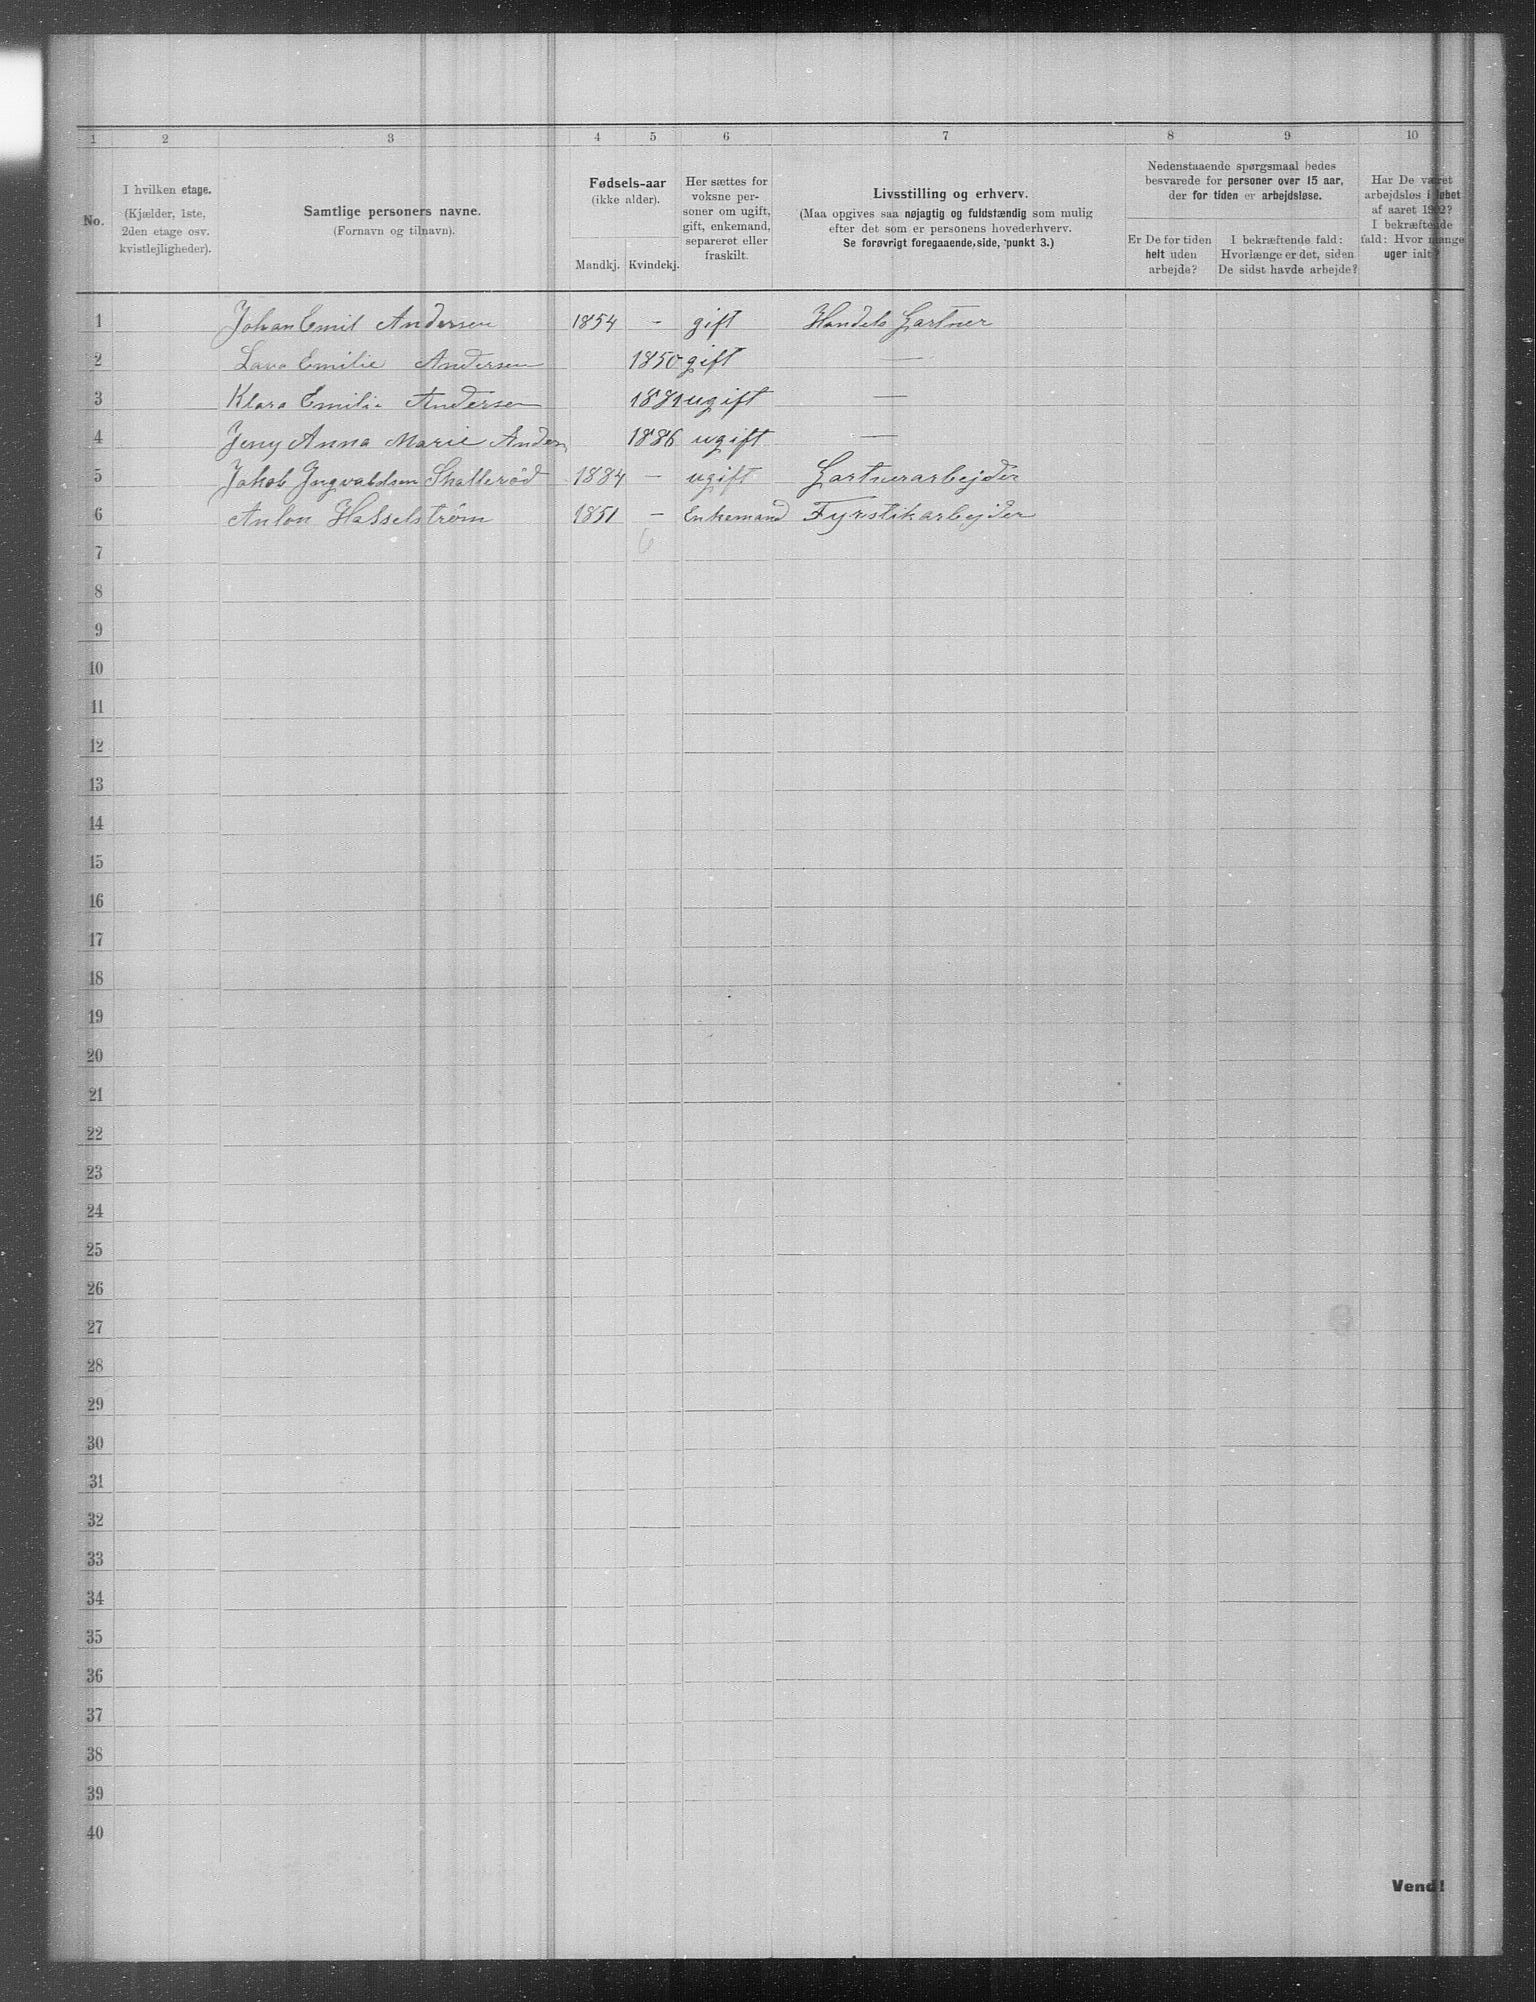 1 2 3 4 5 6 7 8 9 10
No.
I hvilken etage.
(Kjælder, 1ste,
2den etage osv.
kvistlejligheder).
Samtlige personers navne.
(Fornavn og tilnavn).
Fødsels-aar
(ikke alder).
Mandkj. Kvindekj.
Her sættes for
voksne per-
soner om ugift,
gift, enkemand,
separeret eller
fraskilt.
Livsstilling og erhverv.
(Maa opgives saa nøjagtig og fuldstændig som mulig
efter det som er personens hovederhverv.
Se forøvrigt foregaaende side, punkt 3.)
Nedenstaaende spørgsmaal bedes
besvarede for personer over 15 aar,
der for tiden er arbejdsløse.
Er De for tiden
helt uden
arbejde?
I bekræftende fald:
Hvorlænge er det, siden
De sidst havde arbejde?
Har De været
arbejdsløs i løbet
af aaret 1902?
I bekræftende
fald: Hvor mange
uger ialt?
1 Johan Emil Andersen 1854 - gift Handels Gartner
2 Emilie Andersen 1850 gift —
3 Klara Emilie Andersen 1881 ugift —
4 Jeny Anna Marie Ander 1886 ugift —
5 Jakob Yngvaldsen Skallerød 1884 - ugift Gartnerarbejder
6 Anton Hasselstrøm 1851 - Enkemand Fyrstikarbejder
6
7
8
9
10
11
12
13
14
15
16
17
18
19
20
21
22
23
24
25
26
27
28
29
30
31
32
33
34
35
36
37
38
39
40
Vend!